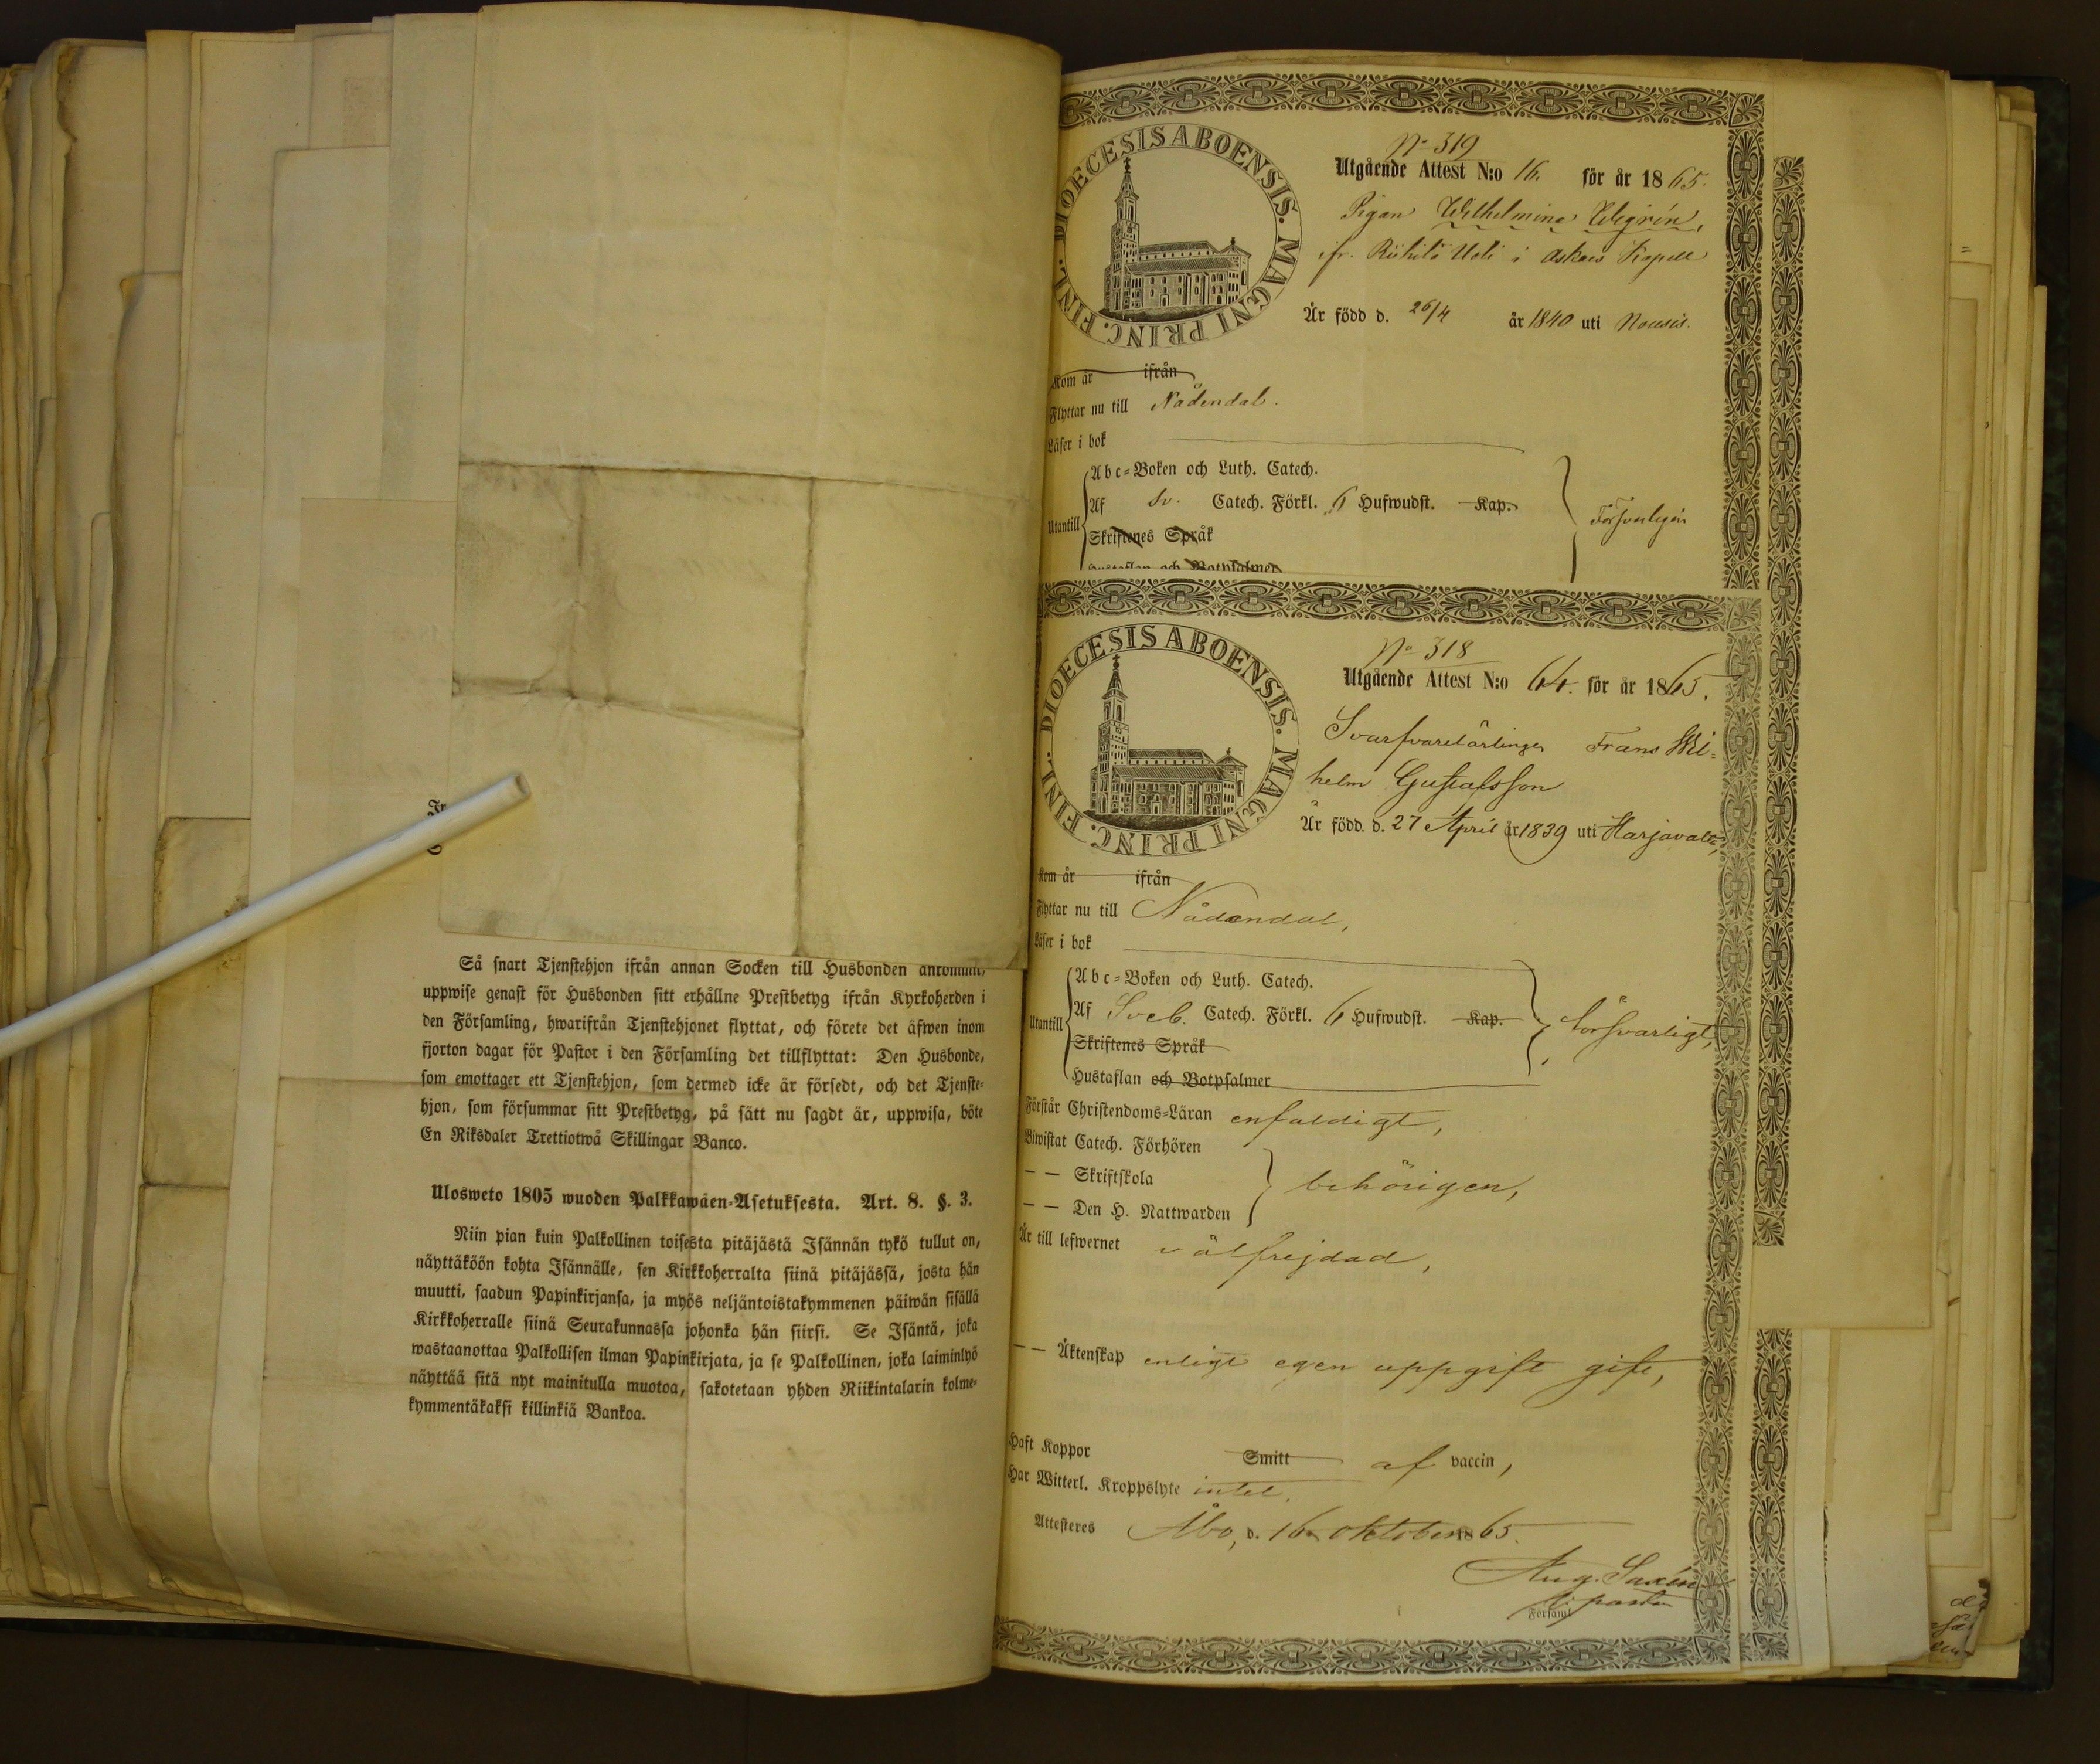 Så snart Tjenstehjon ifrån annan Socken till Husbonden ankommit,
uppwise genast för Husbonden sitt erhållne Prestbetyg ifrån Kyrkoherden i
den Församling, hwarifrån Tjenstehjonet flyttat, och förete det äfwen inom
fjorton dagar för Pastor i den Församling det tillflyttat: Den Husbonde,
som emottager ett Tjenstehjon, som dermed icke är försedt, och det Tjenste-
hjon, som försummar sitt Prestbetyg, på sätt nu sagdt är, uppwisa, böte
En Riksdaler Trettiotwå Skillingar Banco.
Ulosweto 1805 wuoden Palkkawäen-Asetuksesta. Art. 8. §. 3.
Niin pian kuin Palkollinen toisesta pitäjästä Isännän tykö tullut on,
näyttäköön kohta Isännälle, sen Kirkkoherralta siinä pitäjässä, josta hän
muutti, saadun Papinkirjansa, ja myös neljäntoistakymmenen päiwän sisällä
Kirkkoherralle siinä Seurakunnassa johonka hän siirsi. Se Isäntä, joka
wastaanottaa Palkollisen ilman Papinkirjata, ja se Palkollinen, joka laiminlyö
näyttää sitä nyt mainitulla muotoa, sakotetaan yhden Riikintalarin kolme-
kymmentäkaksi killinkiä Bankoa.
DIOECESIS ABOENSIS. MAGNI PRINC. FINL.
No 319
Utgående Attest N:o 16. för år 1865.
Pigan Wilhelmina Wegrén,
ifr. Riihilä Uoti i Askais Kapell
Är född d. 26/4 år 1840 uti Nousis.
Kom år ifrån
Flyttar nu till Nådendal.
Läser i bok
Abc-Boken och Luth. Catech.
Utantill Af Sv. Catech. Förkl. 6 Hufwudst. Kap. Försvarligen
Skriftenes Språk
Hustaflan och Botpsalmer
DIOECESIS ABOENSIS. MAGNI PRINC. FINL.
No 318
Utgående Attest N:o 64. för år 1865.
Svarfvarelärlingen Frans Wil-
helm Gustafsson
Är född. d. 27 April år 1839 uti Harjavalta,
Kom år ifrån
Flyttar nu till Nådendal,
Läser i bok
Abc-Boken och Luth. Catech.
Utantill Af Sveb. Catech. Förkl. 6 Hufwudst. Kap. försvarligt,
Skriftenes Språk
Hustaflan och Botpsalmer
Förstår Christendoms-Läran enfaldigt,
Biwistat Catech. Förhören
— — Skriftskola behörigen,
— — Den H. Nattwarden
Är till lefwernet välfrejdad,
— — Äktenskap enligt egen uppgift gift,
Haft Koppor Smitt af vaccin,
Har Witterl. Kroppslyte intet.
Attesteres Åbo, d. 16 Oktober 1865.
Aug. Saxén
Församl.